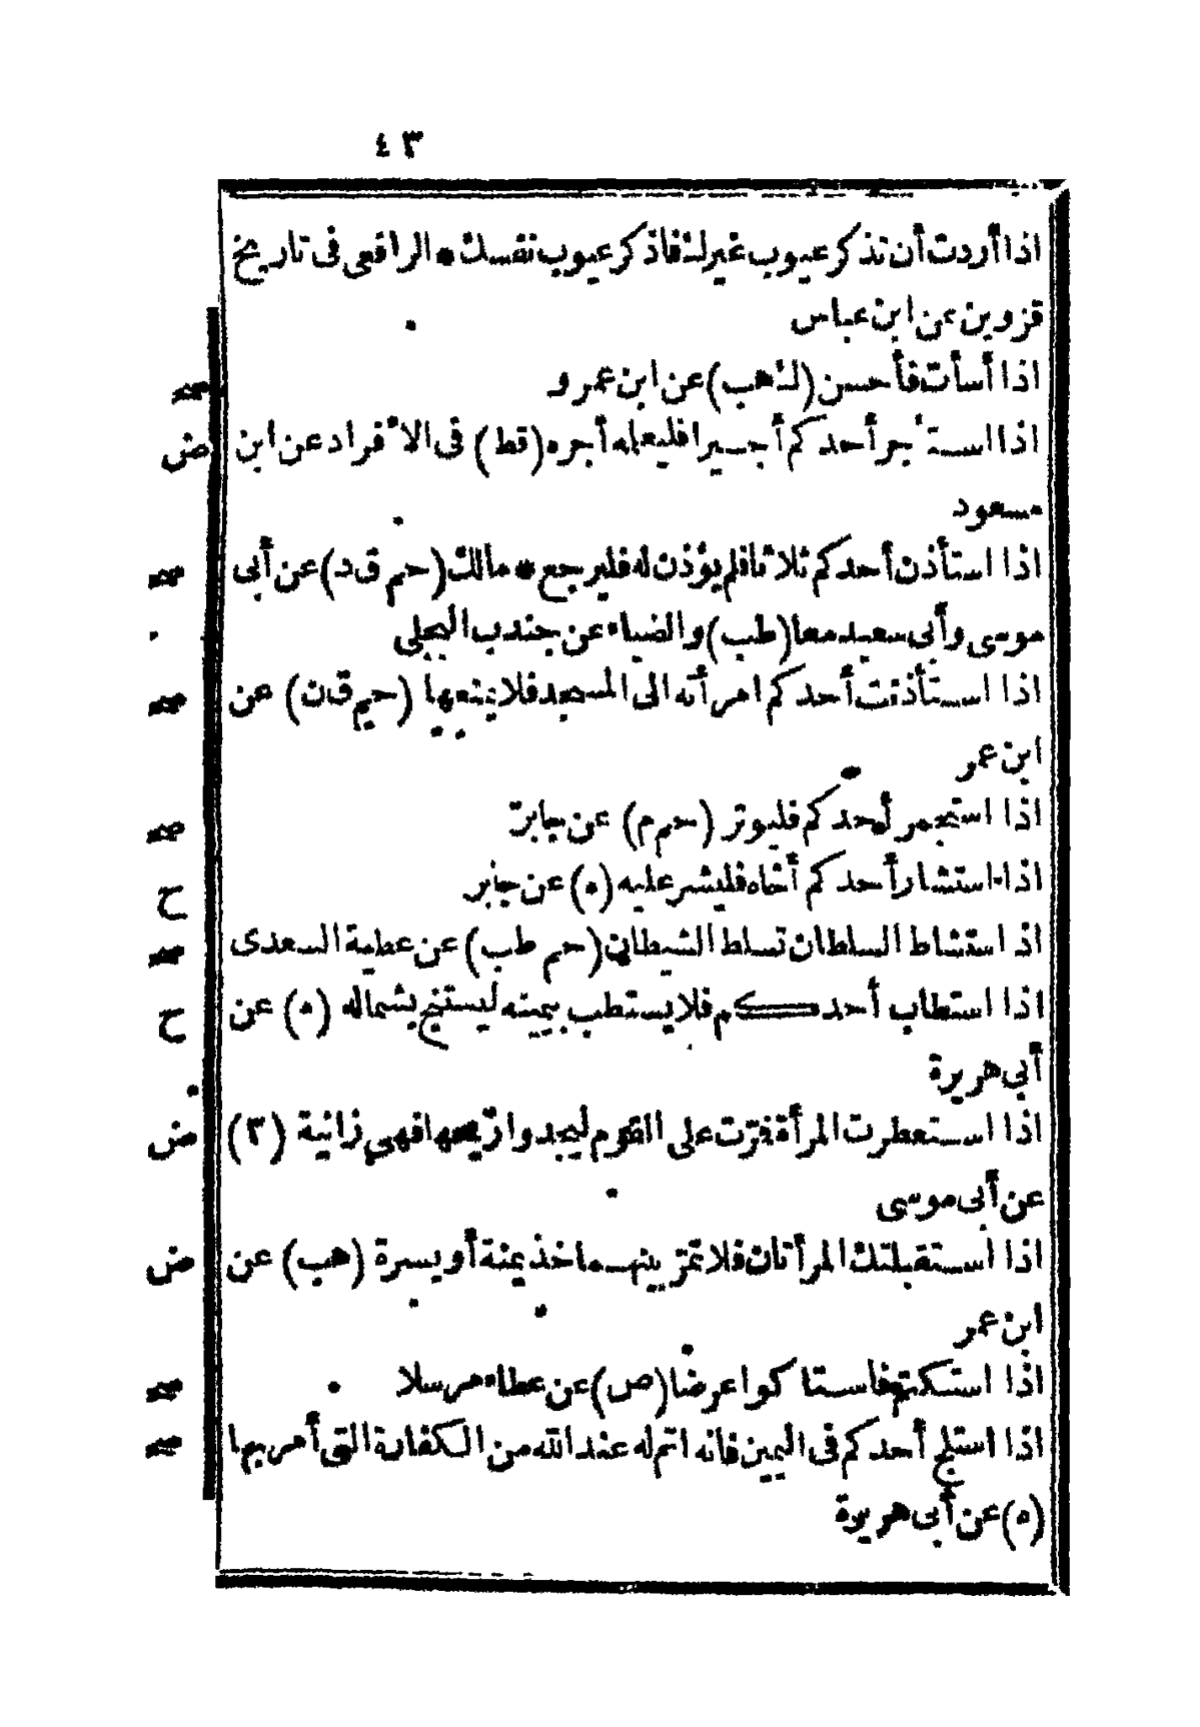 ٤٣
اذا أردت أن تذكر عيوب غيرك فاذكر عيوب نفسك * الرافعى فى تاريخ
قزوين عن ابن عباس
اذا أسأت فأحسن (ك هب) عن ابن عمرو صح
اذا استأجر أحدكم أجيرا فليعلمه أجره (قط) فى الافراد عن ابن ض
مسعود
اذا استأذن أحدكم ثلاثا فلم يؤذن له فليرجع * مالك (حم ق د) عن أبى صح
موسى وأبى سعيد معا (طب) والضياء عن جندب البجلى
اذا استأذنت أحدكم امرأته الى المسجد فلا يمنعها (حم ق ن) عن صح
ابن عمر
اذا استجمر أحدكم فليوتر (حم م) عن جابر صح
اذا استشار أحدكم أخاه فليشر عليه (ه) عن جابر ح
اذا استشاط السلطان تسلط الشيطان (حم طب) عن عطية السعدى صح
اذا استطاب أحدكم فلا يستطب بيمينه ليستنج بشماله (ه) عن ح
أبى هريرة
اذا استعطرت المرأة فمرّت على القوم ليجدوا ريحها فهى زانية (٣) ض
عن أبى موسى
اذا استقبلتك المرأتان فلا تمرّ بينهما خذ يمنة أو يسرة (هب) عن ض
ابن عمر
اذا استكتم فاستاكوا عرضا (ص) عن عطاء مرسلا صح
اذا استلج أحدكم فى اليمين فانه اثم له عند الله من الكفارة التى أمر بها صح
(ه) عن أبى هريرة